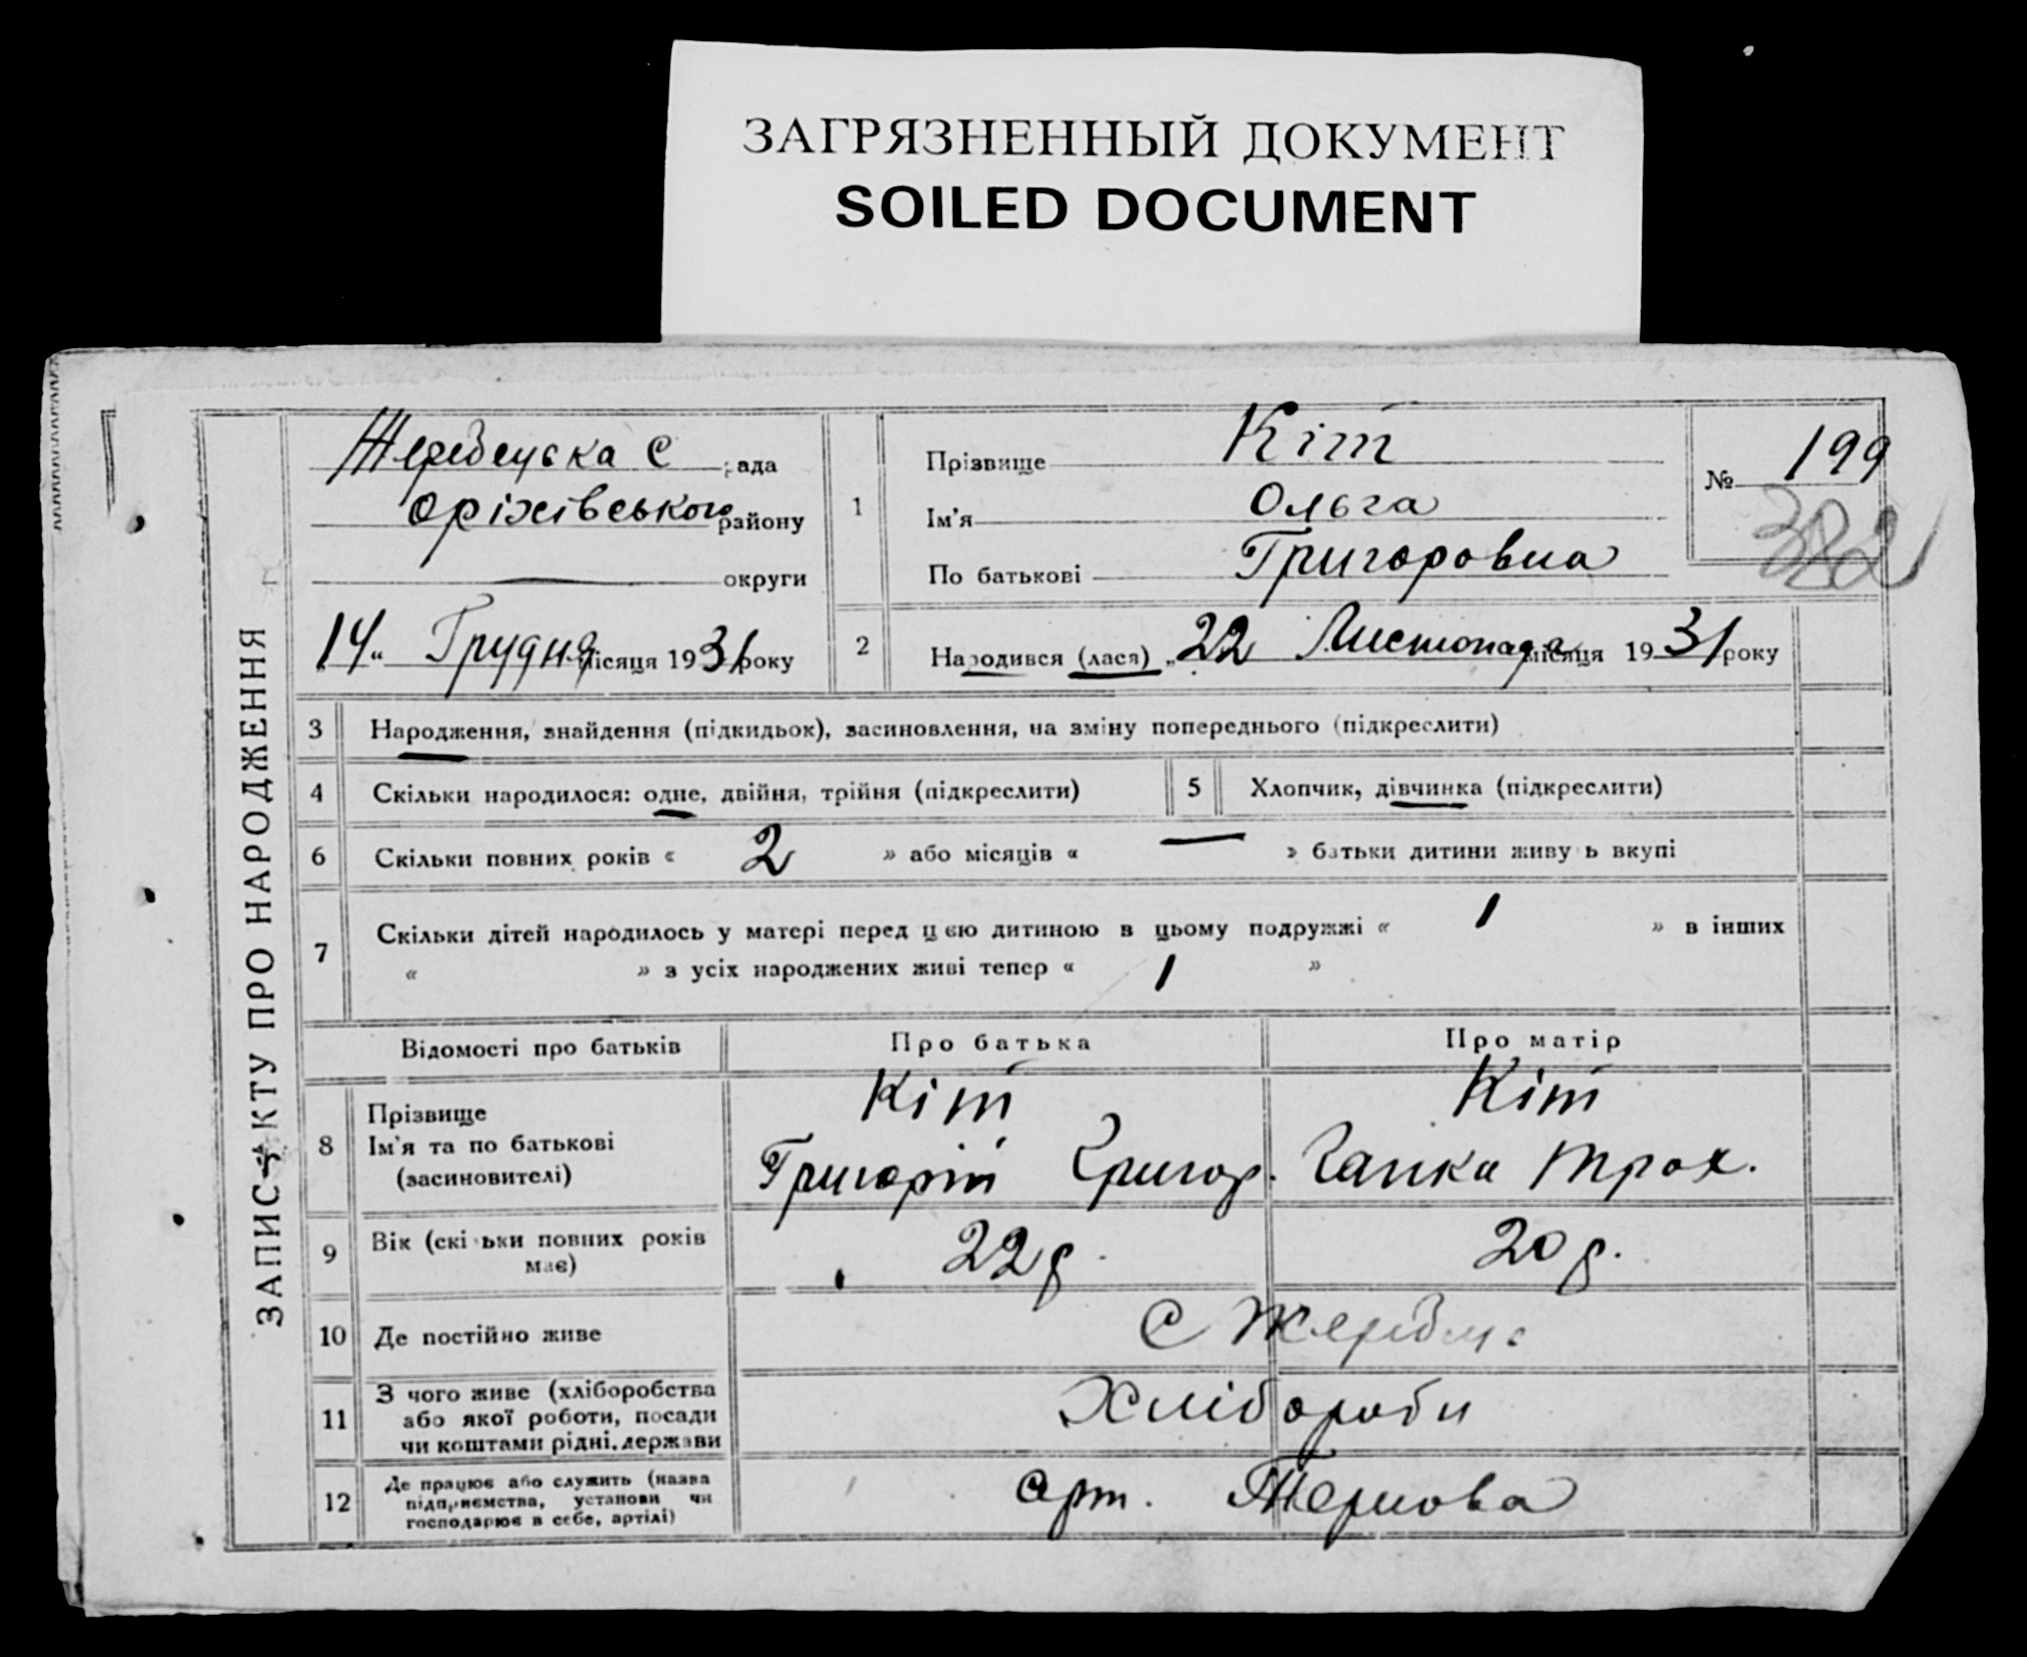 ЗАГРЯЗНЕННЫЙ ДОКУМЕНТ
SOILED DOCUMENT
ЗАПИС АКТУ ПРО НАРОДЖЕННЯ
Жеребецька С рада
Оріхівського району
округи
14 „ Грудня місяця 1931 року
1
Прізвище Кіт
Ім'я Ольга
По батькові Григоровна
№ 199
382
2
Народився (лася) „ 22 Листопада місяця 1931 року
3 Народження, знайдення (підкидьок), засиновлення, на зміну попереднього (підкреслити)
4 Скільки народилося: одне, двійня, трійня (підкреслити)
5 Хлопчик, дівчинка (підкреслити)
6 Скільки повних років « 2 » або місяців « — » батьки дитини живуть вкупі
7 Скільки дітей народилось у матері перед цією дитиною в цьому подружжі « 1 » в інших
« » з усіх народжених живі тепер « 1 »
Відомості про батьків Про батька Про матір
8 Прізвище Кіт Кіт
Ім'я та по батькові Григорій Григор. Гапка Трох.
(засиновителі)
9 Вік (скільки повних років має) 22 р. 20 р.
10 Де постійно живе С Жереб
11 З чого живе (хліборобства або якої роботи, посади чи коштами рідні, держави Хлібороби
12 Де працює або служить (назва підприємства, установи чи господарює в себе, артілі) Арт. Тернова